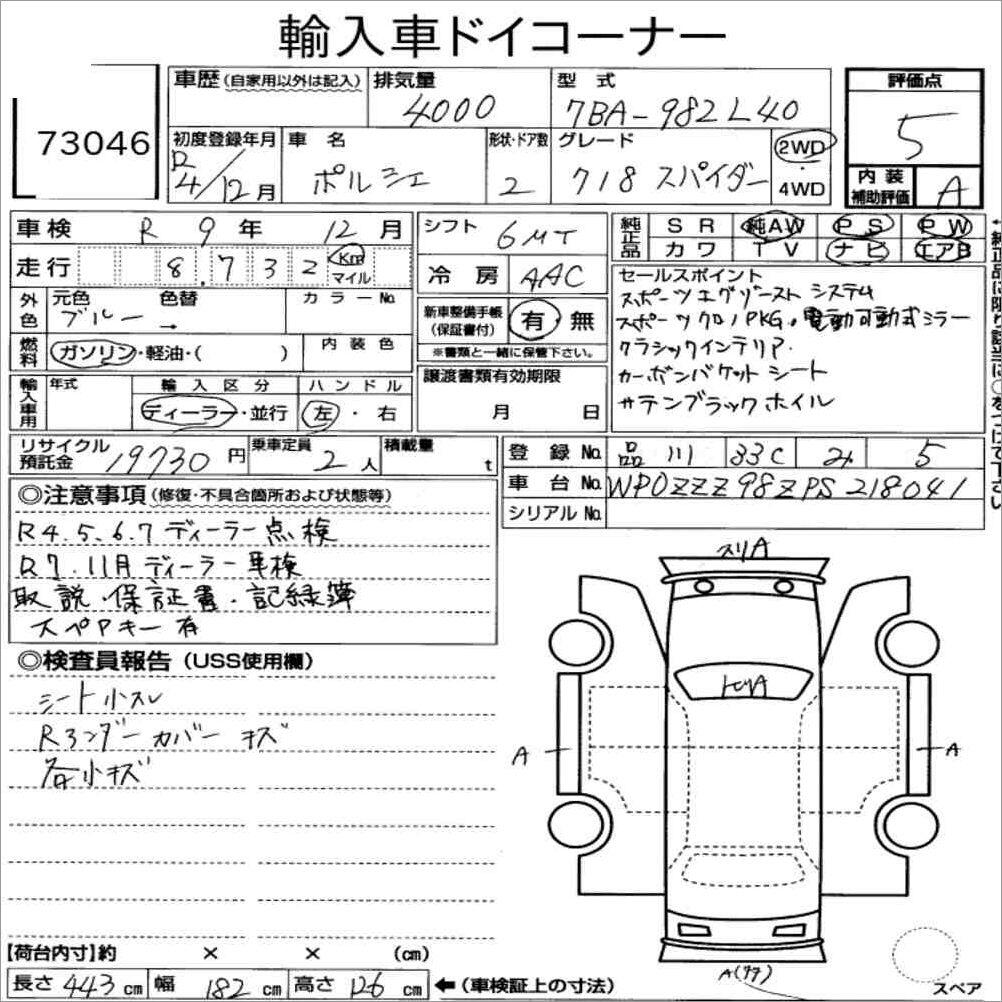 輸入車ドイコーナー
73046
車歴(自家用以外は記入) 排気量 4000 型式 7BA-982L40
初度登録年月 R4/12月 車名 ポルシェ 形状・ドア数 2 グレード 718 スパイダー 2WD・4WD
評価点 5
内装補助評価 A
車検 R 9年 12月
走行 8,732 Km マイル
外色 元色 ブルー 色替 → カラーNo.
燃料 ガソリン・軽油・( ) 内装色
輸入車用 年式 輸入区分 ディーラー・並行 ハンドル 左・右
シフト 6MT
冷房 AAC
新車整備手帳(保証書付) 有・無
※書類と一緒に保管下さい。
譲渡書類有効期限
月 日
純正品 SR 純AW PS PW
カワ TV ナビ エアB
セールスポイント
スポーツエグゾースト システム
スポーツクロノPKG。電動可動式ミラー
クラシックインテリア.
カーボンバケット シート
サテンブラック ホイル
←純正品に限り該当に○をつけて下さい
リサイクル預託金 19730円 乗車定員 2人 積載量 t
登録No. 品川 33C み 5
車台No. WP0ZZZ98ZPS218041
シリアルNo.
◎注意事項(修復・不具合箇所および状態等)
R4.5.6.7 ディーラー点検
R7.11月 ディーラー車検
取説.保証書.記録簿
スペアキー有
◎検査員報告(USS使用欄)
シート小スレ
Rアンダーカバー キズ
各小キズ
スリA
トビA
A
A
A(ワケ)
スペア
【荷台内寸】約 × × (cm)
長さ 443 cm 幅 182 cm 高さ 126 cm ←(車検証上の寸法)